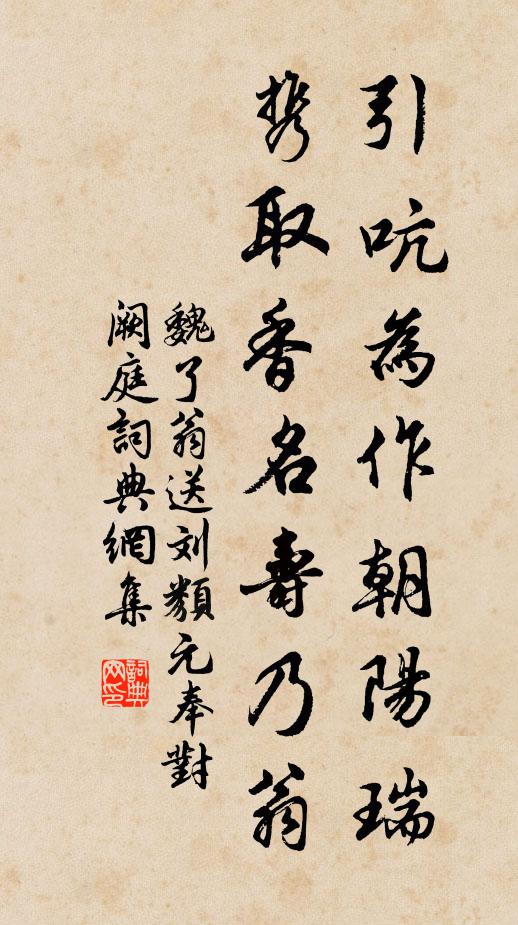 引吭為作朝陽瑞
携取香名壽乃翁
魏了翁送刘颣元奉對
阙庭詞典網集
詞典网印